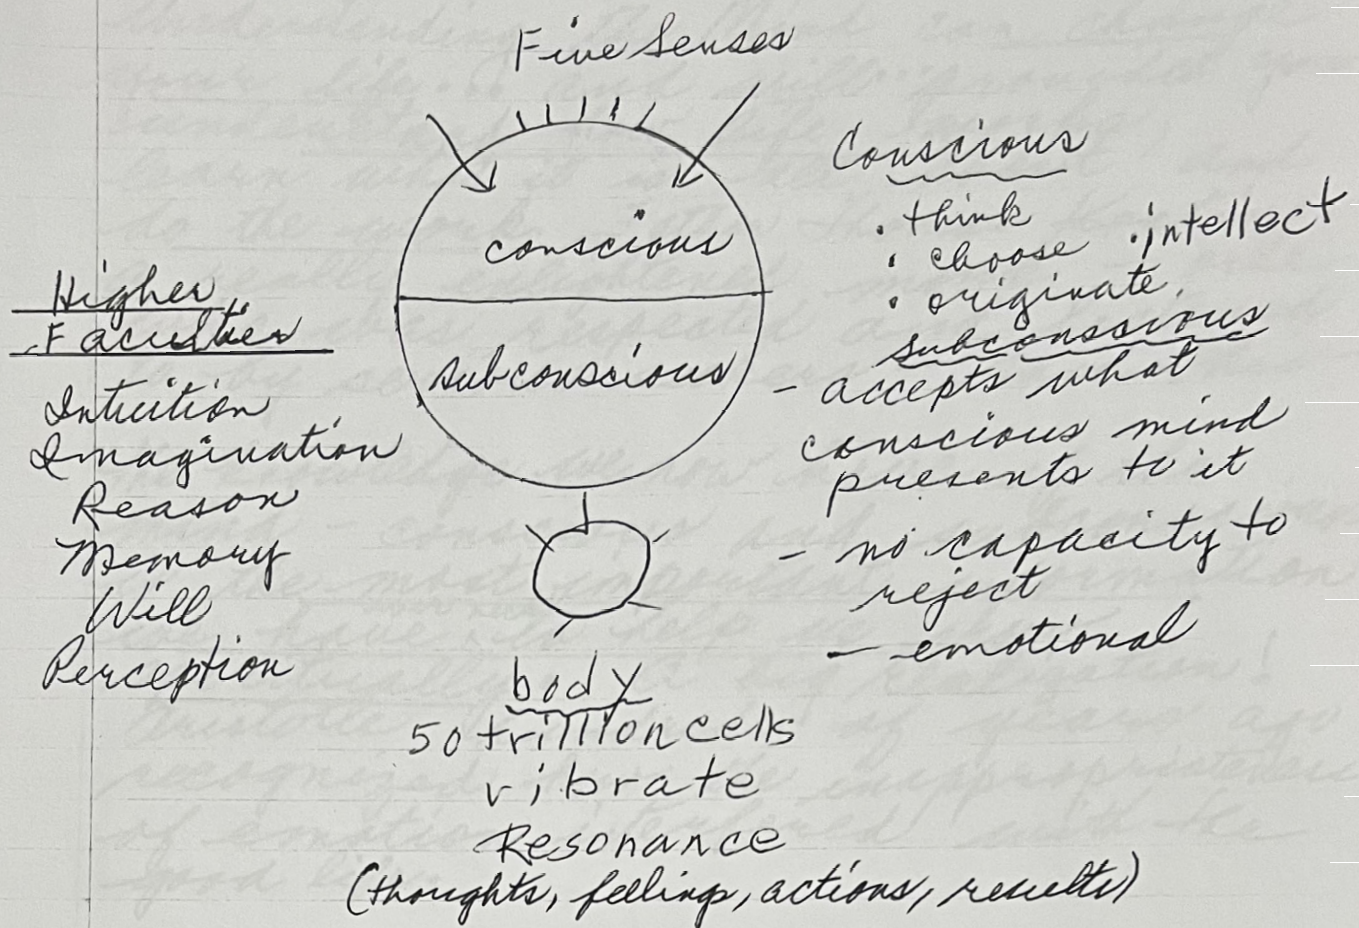 Five Senses
conscious
subconscious
Higher
Faculties
Intuition
Imagination
Reason
Memory
Will
Perception
Conscious
· think
· choose · intellect
· originate
subconscious
- accepts what
conscious mind
presents to it
- no capacity to
reject
- emotional
body
50 trillion cells
vibrate
Resonance
(thoughts, feelings, actions, results)